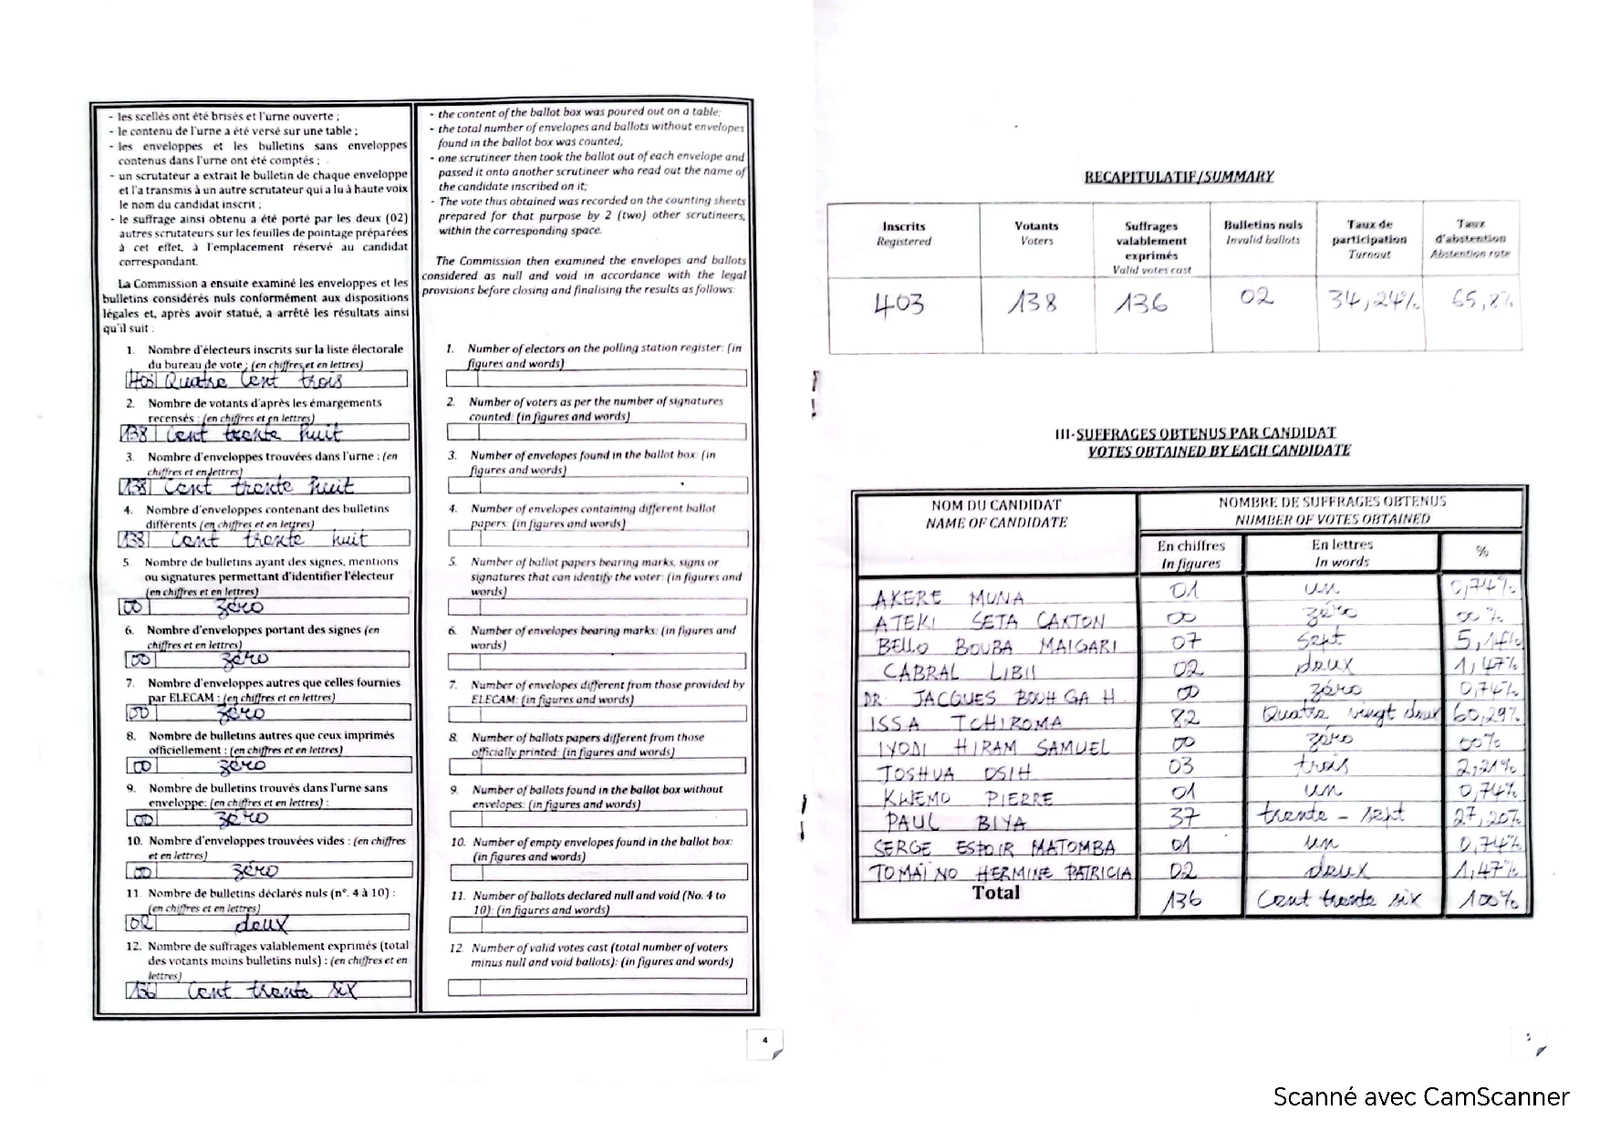 - les scellés ont été brisés et l'urne ouverte ;
- le contenu de l'urne a été versé sur une table ;
- les enveloppes et les bulletins sans enveloppes
contenus dans l'urne ont été comptés ;
- un scrutateur a extrait le bulletin de chaque enveloppe
et l'a transmis à un autre scrutateur qui a lu à haute voix
le nom du candidat inscrit ;
- le suffrage ainsi obtenu a été porté par les deux (02)
autres scrutateurs sur les feuilles de pointage préparées
à cet effet, à l'emplacement réservé au candidat
correspondant.
La Commission a ensuite examiné les enveloppes et les
bulletins considérés nuls conformément aux dispositions
légales et, après avoir statué, a arrêté les résultats ainsi
qu'il suit :
1. Nombre d'électeurs inscrits sur la liste électorale
du bureau de vote : (en chiffres et en lettres)
403 Quatre Cent trois
2. Nombre de votants d'après les émargements
recensés : (en chiffres et en lettres)
138 Cent trente huit
3. Nombre d'enveloppes trouvées dans l'urne : (en
chiffres et en lettres)
138 Cent trente huit
4. Nombre d'enveloppes contenant des bulletins
différents (en chiffres et en lettres)
138 Cent trente huit
5. Nombre de bulletins ayant des signes, mentions
ou signatures permettant d'identifier l'électeur
(en chiffres et en lettres)
00 zéro
6. Nombre d'enveloppes portant des signes (en
chiffres et en lettres)
00 zéro
7. Nombre d'enveloppes autres que celles fournies
par ELECAM : (en chiffres et en lettres)
00 zéro
8. Nombre de bulletins autres que ceux imprimés
officiellement : (en chiffres et en lettres)
00 zéro
9. Nombre de bulletins trouvés dans l'urne sans
enveloppe: (en chiffres et en lettres) :
00 zéro
10. Nombre d'enveloppes trouvées vides : (en chiffres
et en lettres)
00 zéro
11. Nombre de bulletins déclarés nuls (n°. 4 à 10) :
(en chiffres et en lettres)
02 deux
12. Nombre de suffrages valablement exprimés (total
des votants moins bulletins nuls) : (en chiffres et en
lettres)
136 Cent trente six
- the content of the ballot box was poured out on a table;
- the total number of envelopes and ballots without envelopes
found in the ballot box was counted;
- one scrutineer then took the ballot out of each envelope and
passed it onto another scrutineer who read out the name of
the candidate inscribed on it;
- The vote thus obtained was recorded on the counting sheets
prepared for that purpose by 2 (two) other scrutineers,
within the corresponding space.
The Commission then examined the envelopes and ballots
considered as null and void in accordance with the legal
provisions before closing and finalising the results as follows:
1. Number of electors on the polling station register: (in
figures and words)
2. Number of voters as per the number of signatures
counted: (in figures and words)
3. Number of envelopes found in the ballot box: (in
figures and words)
4. Number of envelopes containing different ballot
papers: (in figures and words)
5. Number of ballot papers bearing marks, signs or
signatures that can identify the voter: (in figures and
words)
6. Number of envelopes bearing marks: (in figures and
words)
7. Number of envelopes different from those provided by
ELECAM: (in figures and words)
8. Number of ballots papers different from those
officially printed: (in figures and words)
9. Number of ballots found in the ballot box without
envelopes: (in figures and words)
10. Number of empty envelopes found in the ballot box:
(in figures and words)
11. Number of ballots declared null and void (No. 4 to
10): (in figures and words)
12. Number of valid votes cast (total number of voters
minus null and void ballots): (in figures and words)
4
RECAPITULATIF/SUMMARY
Inscrits Registered Votants Voters Suffrages valablement exprimés Valid votes cast Bulletins nuls Invalid ballots Taux de participation Turnout Taux d'abstention Abstention rate
403 138 136 02 34,24% 65,8%
III-SUFFRAGES OBTENUS PAR CANDIDAT
VOTES OBTAINED BY EACH CANDIDATE
NOM DU CANDIDAT NOMBRE DE SUFFRAGES OBTENUS
NAME OF CANDIDATE NUMBER OF VOTES OBTAINED
En chiffres En lettres %
In figures In words
AKERE MUNA 01 un 0,74%
ATEKI SETA CAXTON 00 zéro 00%
BELLO BOUBA MAIGARI 07 Sept 5,14%
CABRAL LIBII 02 deux 1,47%
DR. JACQUES BOUHGA H 00 zéro 0,74%
ISSA TCHIROMA 82 Quatre vingt deux 60,29%
IYODI HIRAM SAMUEL 00 zéro 00%
JOSHUA OSIH 03 trois 2,21%
KWEMO PIERRE 01 un 0,74%
PAUL BIYA 37 trente - sept 27,20%
SERGE ESPOIR MATOMBA 01 un 0,74%
TOMAÏNO HERMINE PATRICIA 02 deux 1,47%
Total 136 Cent trente six 100%
5
Scanné avec CamScanner